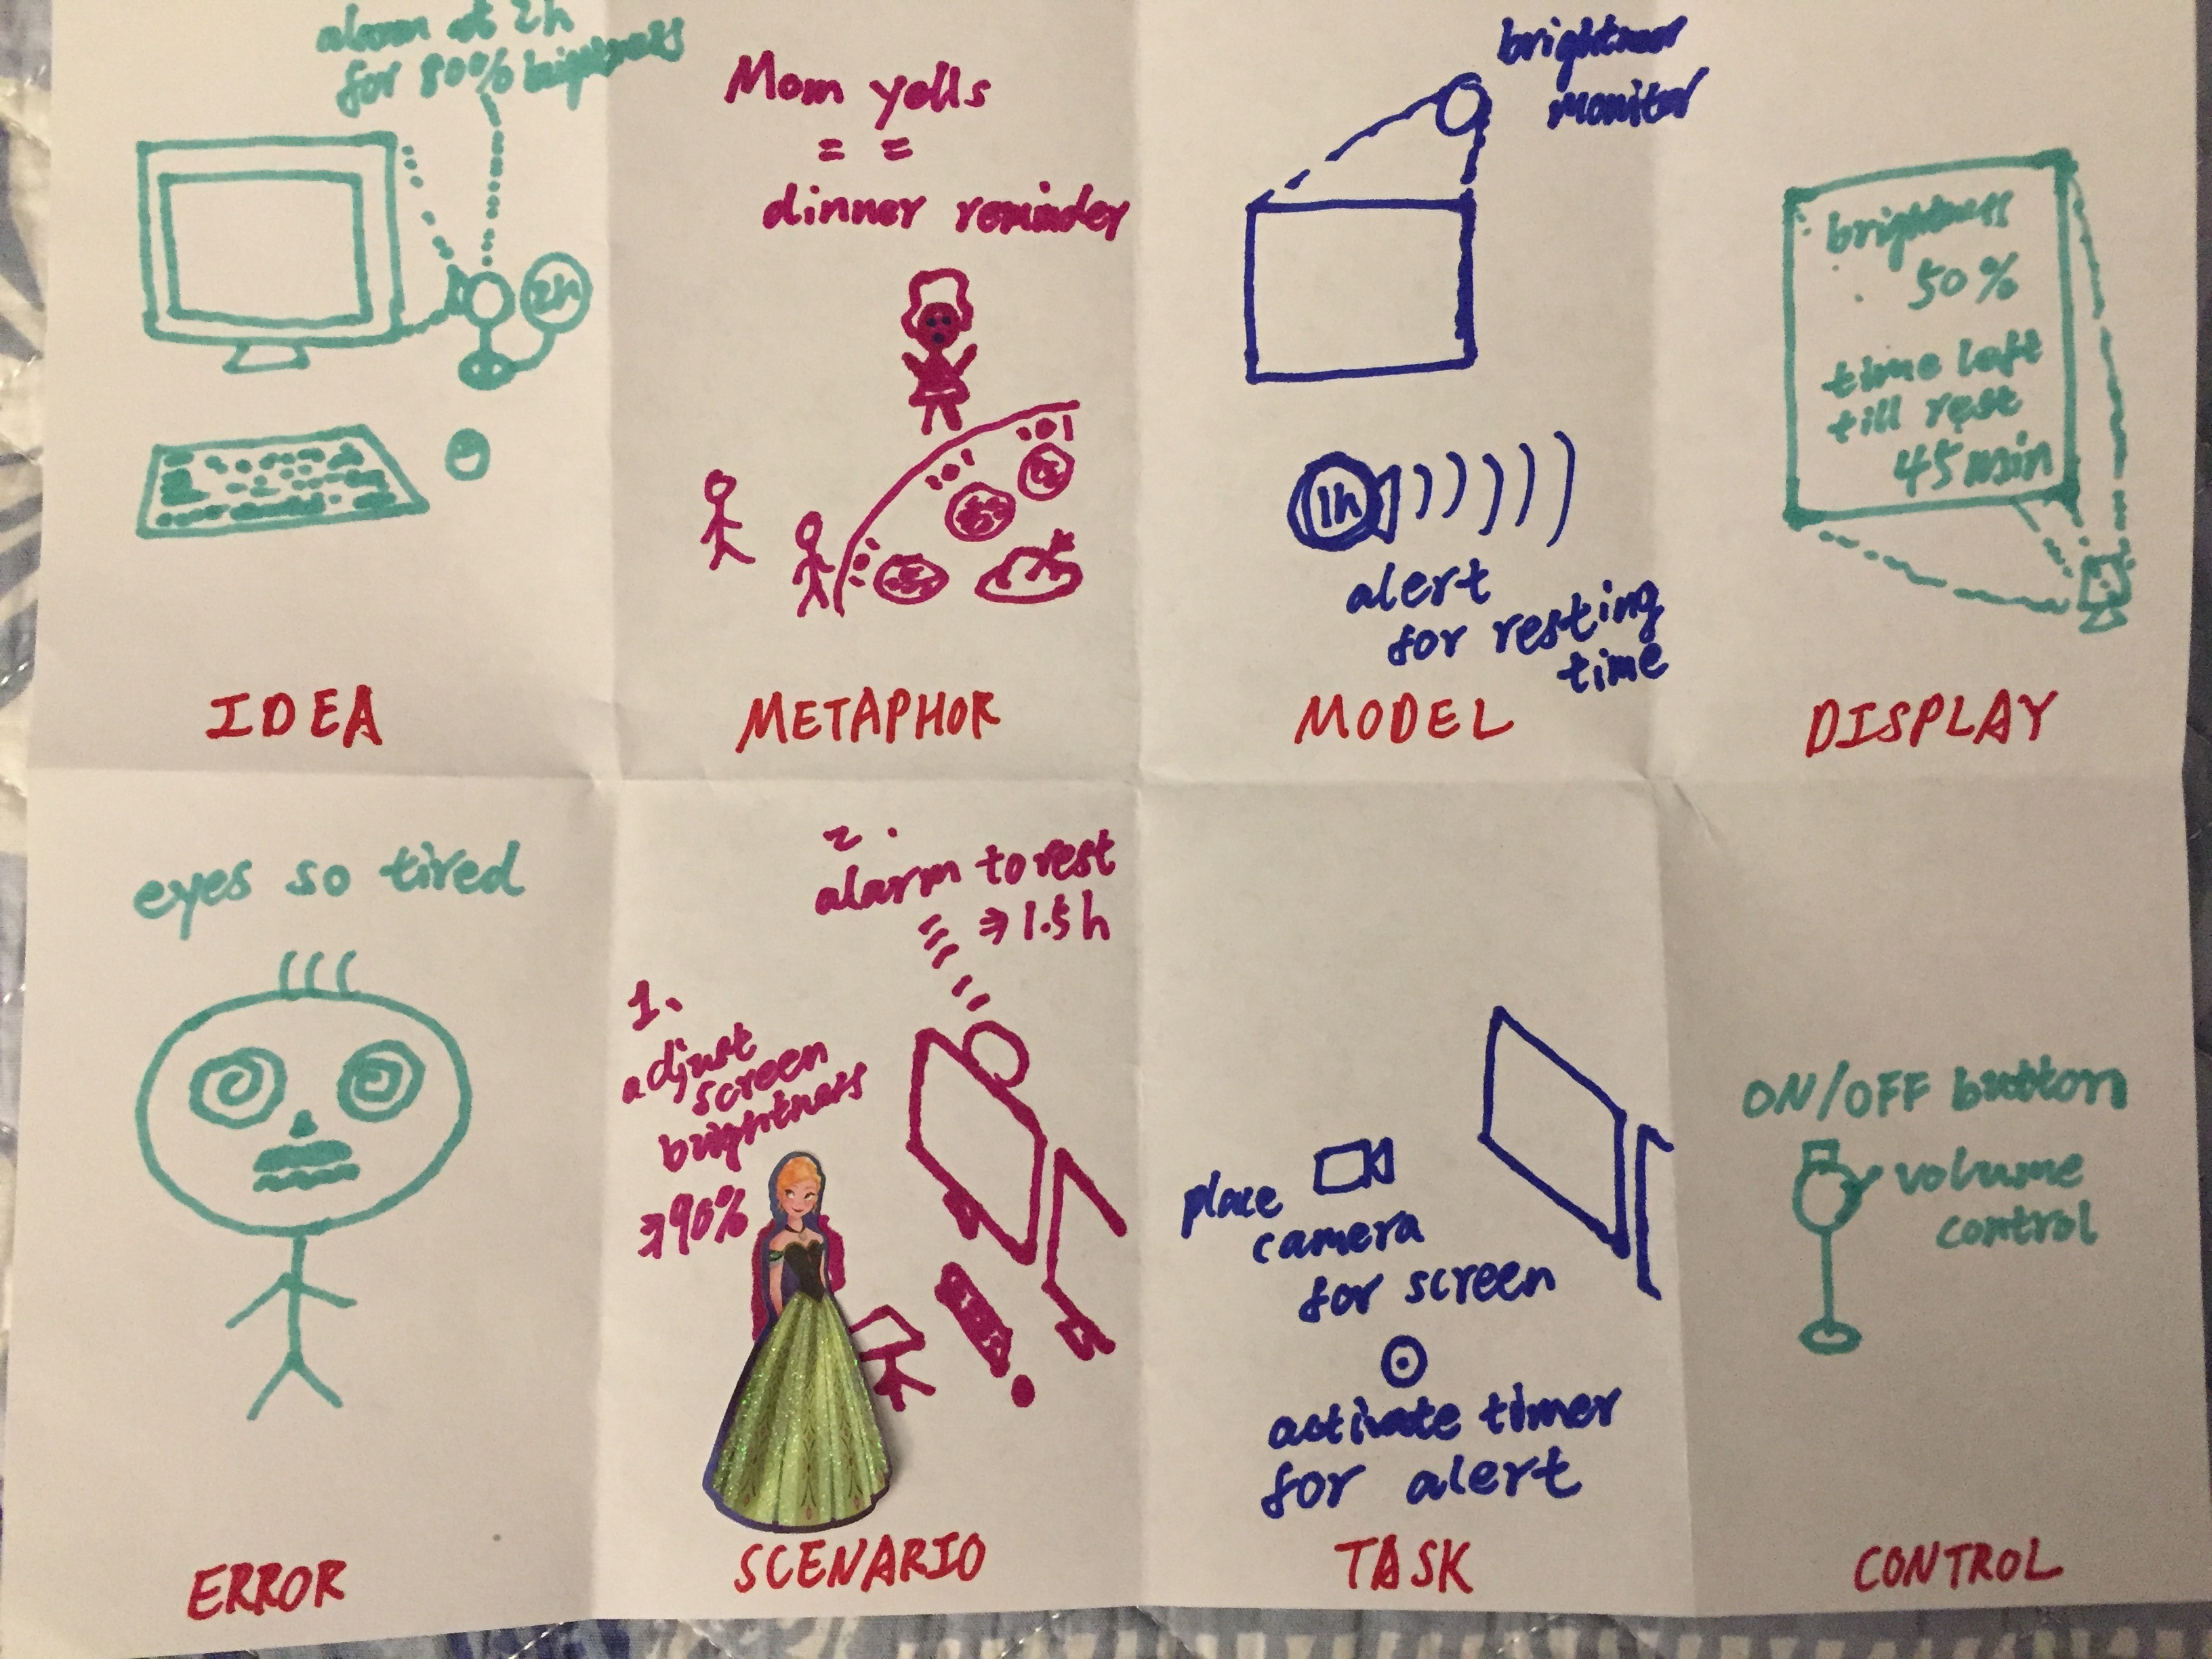 alarm at 2h
for 80% brightness
2h
IDEA
Mom yells
= =
dinner reminder
METAPHOR
brightness
monitor
1h
alert
for resting
time
MODEL
brightness
50%
time left
till rest
45min
DISPLAY
eyes so tired
ERROR
2.
alarm to rest
⇒ 1.5h
1.
adjust
screen
brightness
⇒90%
SCENARIO
place
camera
for screen
activate timer
for alert
TASK
ON/OFF button
volume
control
CONTROL